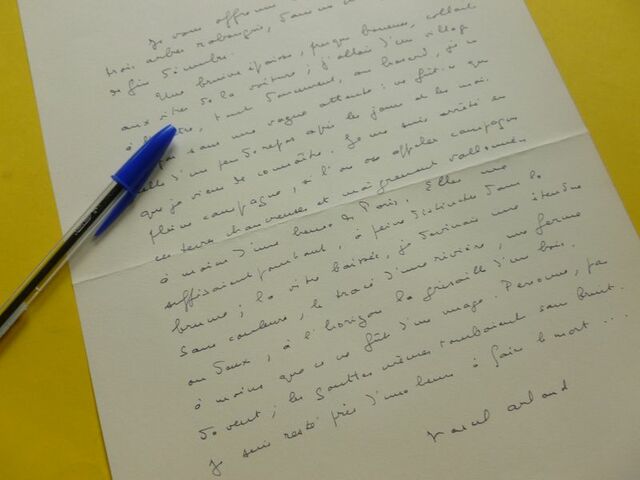 Je vous offrirai
trois arbres rabougris, dans un
de fin décembre.
Une brume épaisse, presque boueuse, collait
aux vitres de la voiture ; j'allais d'un village
à l'autre, tout doucement, au hasard, je ne
sans une vague attente : ne fût-ce que
celle d'un peu de repos après les jours et les mois
que je viens de connaître. Je me suis arrêté en
pleine campagne, si l'on ose appeler campagne
ces terres chauves et maigrement vallonnées
à moins d'une heure de Paris. Elles me
suffisaient pourtant, à peine distinctes dans la
brume ; la vitre baissée, je devinais une étendue
sans couleurs, le tracé d'une rivière, une ferme
ou deux, à l'horizon la grisaille d'un bois,
à moins que ce ne fût d'un nuage. Personne, pas
de vent ; les gouttes mêmes tombaient sans bruit.
Je suis resté près d'une heure à faire le mort ...
Marcel Arland